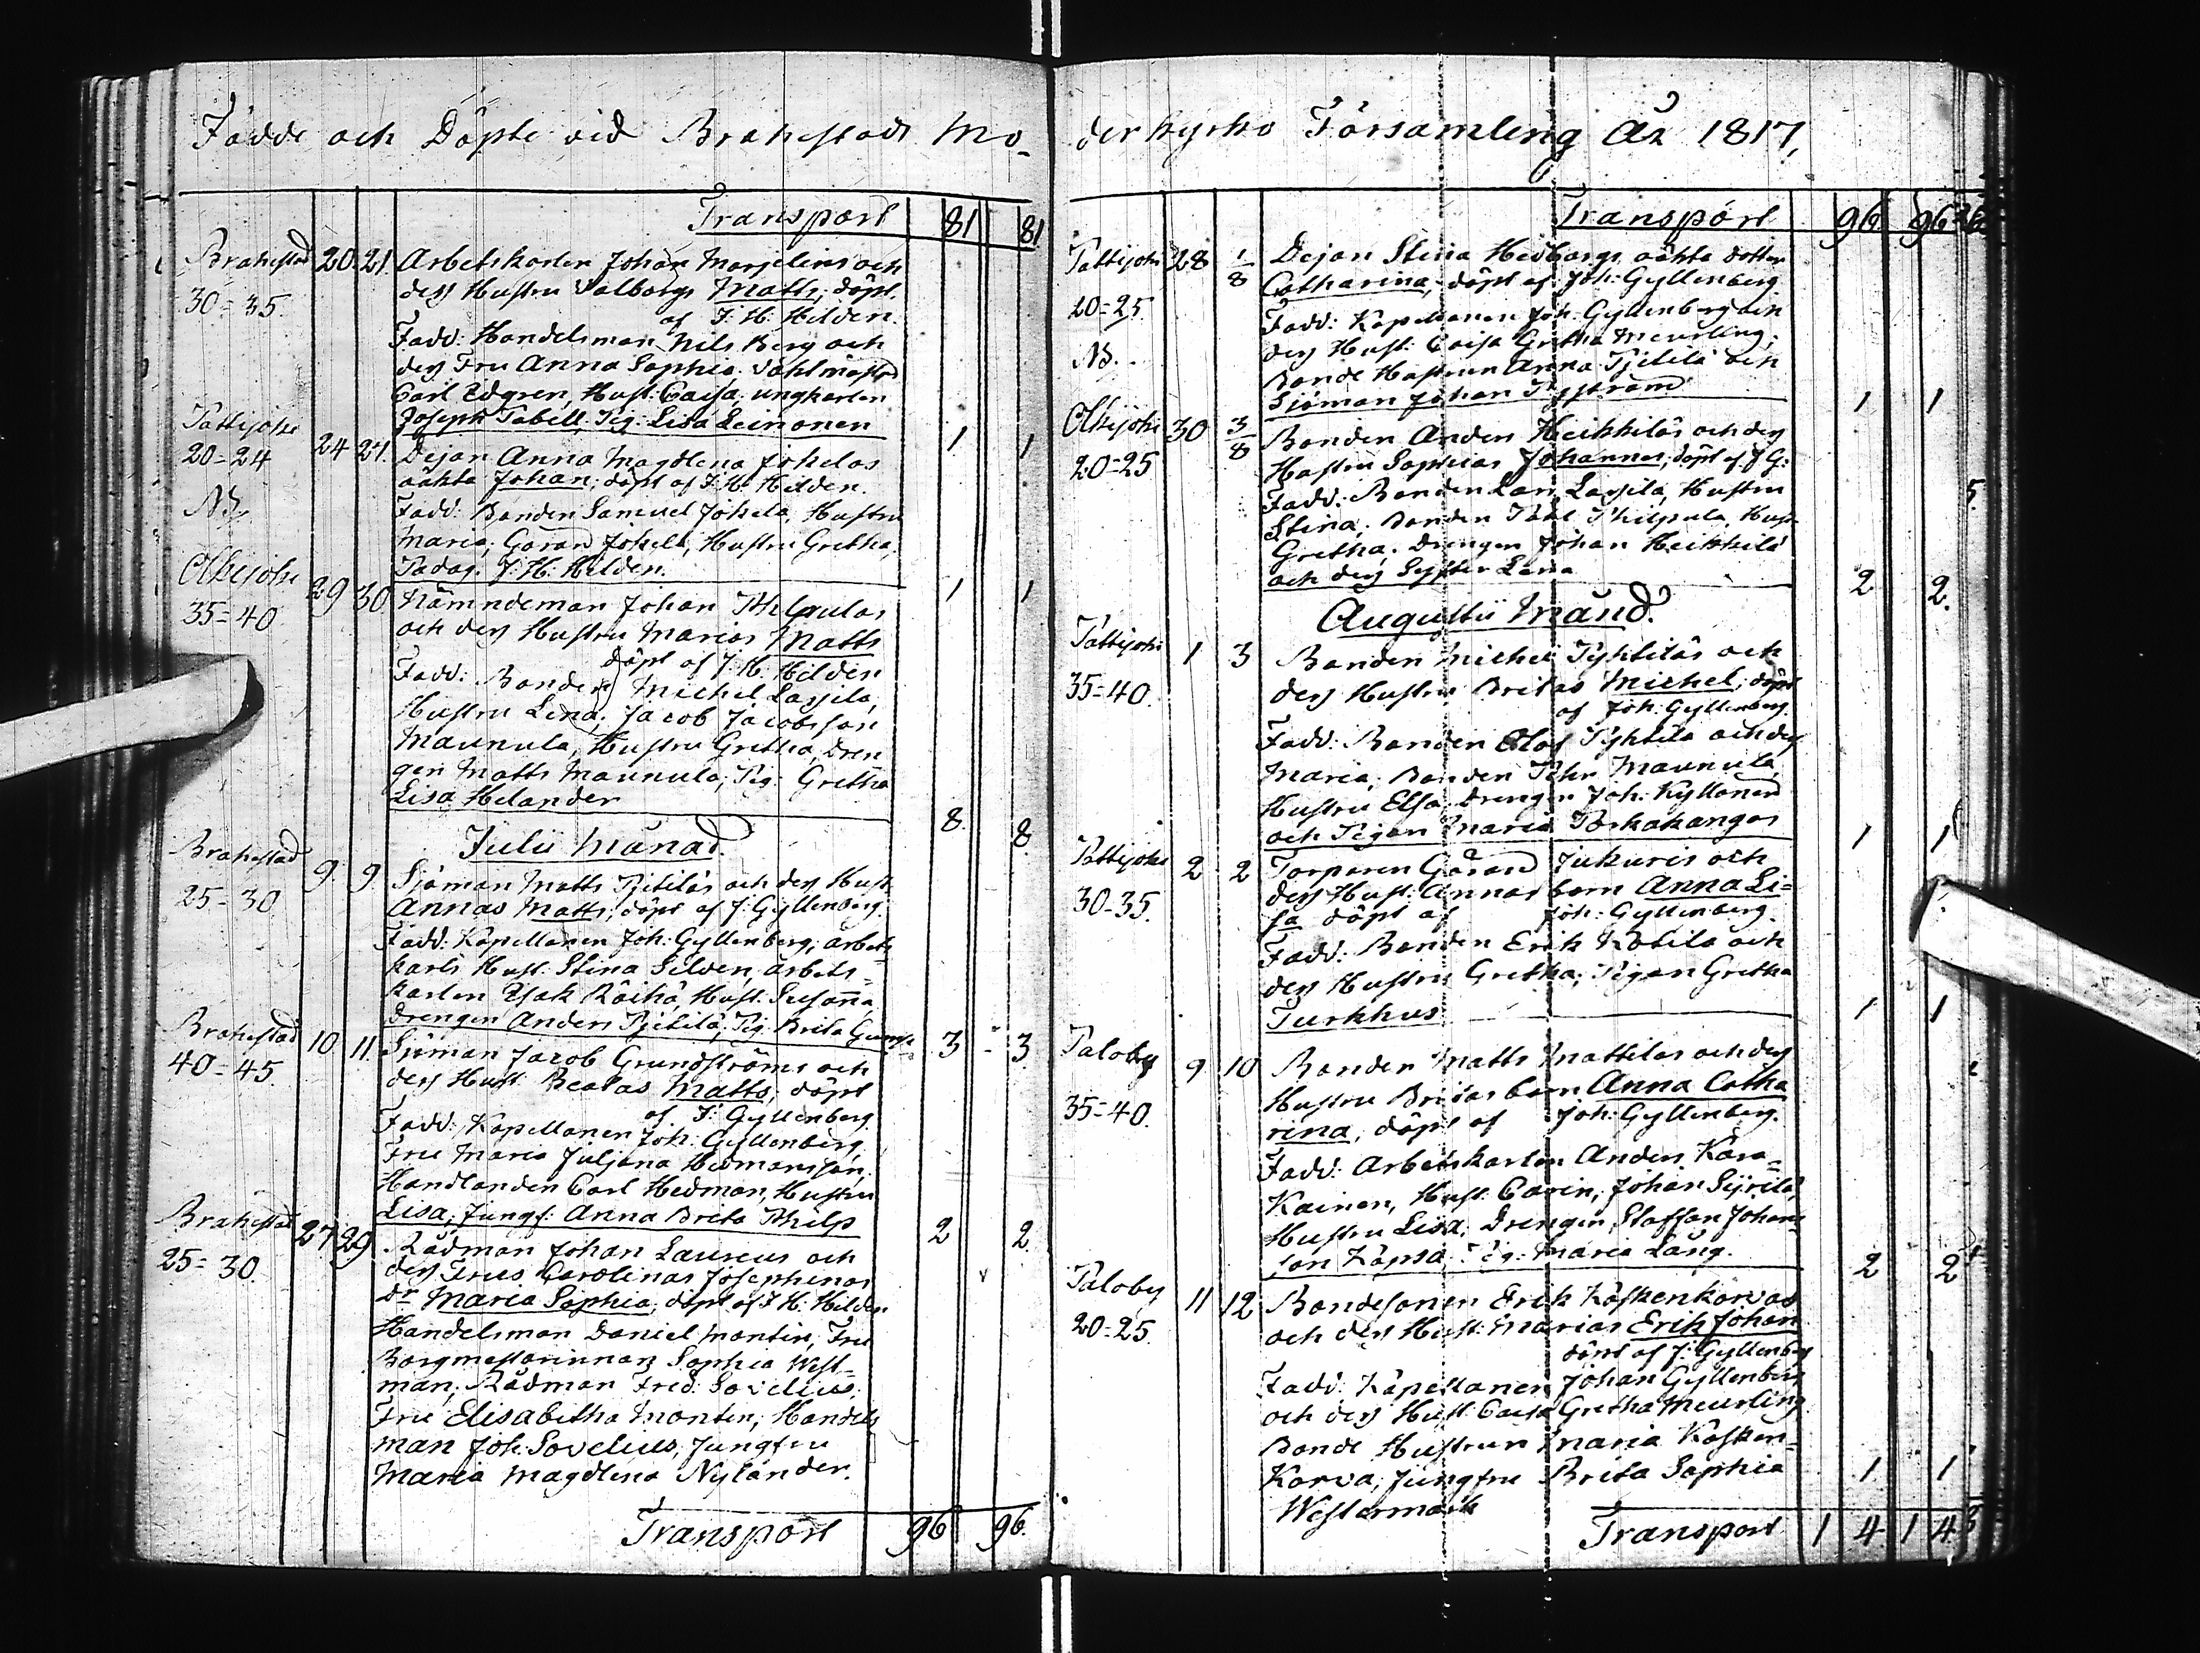 Födde och Döpte vid Brahestads Mo-
Transport 81 81
Brahestad 20 21 Arbetskarlen Johan Marjelins och
30=35. dess Hustru Valborgs Matts, döpt
af J: H: Hildén.
Fadd: Handelsman Nils Berg och
dess Fru Anna Sophia.
Carl Edgren, Hust: Caisa; ungkarlen
Joseph Tabell, Pig: Lisa Leinonen 1 1
Pattijoki 24 27. Dejan Anna Magdlena Jokelas
20=24 oäkta Johan; döpt af J: H: Hildén.
NB. Fadd: Bonden Samuel Jokela, Hustru
Maria; Göran Jokela, Hustru Gretha,
Pädag. J: H: Hildén. 1 1
Olkijoki 29 30 Nämndeman Johan Philpulas
35=40 och dess Hustru Marias Matts
döpt af J: H: Hildén
Fadd: Bonden Michel Lassila,
Hustru Lena; Jacob Jacobsson
Maunula, Hustru Gretha, Dren
gen Matts Maunula; Pig: Gretha
Lisa Helander 8. 8.
Julii Månad.
Brahestad 9. 9 Sjöman Matts Pjetiläs och dess Hust:
25=30. Annas Matts; döpt af J: Gyllenberg.
Fadd: Kapellanen Joh: Gyllenberg; arbets
karls Hust: Stina Silvén, arbets=
karlen Isak Räihä, Hust: Susanna,
Drengen Anders Pjetilä; Pig: Brita 3 3.
Brahestad 10 11. Sjöman Jacob Grundströms och
40=45. dess Hust: Beatas Matts, döpt
af J: Gyllenberg.
Fadd: Kapellanen Joh: Gyllenberg,
Fru Maria Juljana Hedmansson,
Handlanden Carl Hedman, Hustru
Lisa; Jungf: Anna Brita Philp 2 2.
Brahestad 27 29. Rådman Johan Laureus och
25=30. dess Frus Carolinas Josephinas
Dr Maria Sophia, döpt af J: H: Hildén
Handelsman Daniel Montin, Fru
Borgmestarinnan Sophia West=
man; Rådman Fred: Sovelius,
Fru Elisabetha Montin; Handels
man Joh: Sovelius, Jungfru
Maria Magdlena Nylander.
Transport 96 96.
derkyrko Församling År 1817,
Transport 96. 96
Pattijoki 28 1/8 Dejan Stina Hedbergs oäkta dotter
20=25. Catharina; döpt af Joh: Gyllenberg
NB. Fadd: Kapellanen Joh: Gyllenberg och
dess Hust: Caisa Gretha Meurling;
Bonde Hustrun Anna Pjetilä och
Sjöman Johan 1 1
Olkijoki 30 3/8 Bonden Anders Heikkiläs och dess
20=25 Hustru Sophias Johannes; döpt af J G:
Fadd: Bonden Lars Lassila, Hustru
Stina; Bonden Påhl Philpula, Hust:
Gretha; Drengen Johan Heikkilä
och dess Syster Lena 2 2.
Augustii Månd.
Pattijoki 1 3 Bonden Michel Pyhtiläs och
35=40. dess Hustru Britas Michel; döpt
af Joh: Gyllenberg.
Fadd: Bonden Olof Pyhtilä och dess
Maria; Bonden Pehr Maunula,
Hustru Elsa. Drengen Joh: Kyllönen
och Pigan Maria Porkakangas 1 1
Pattijoki 2 2 Torparen Göran Jukuris och
30=35. dess Hust: Annas barn Anna Li=
sa döpt af Joh: Gyllenberg.
Fadd: Bonden Erik Kotila och
dess Hustru Gretha; Pigan Gretha
Turkhus 1 1
Paloby 9 10 Bonden Matts Mattilas och dess
35=40. Hustru Britas barn Anna Catha
rina, döpt af Joh: Gyllenberg.
Fadd: Arbetskarlen Anders Kara=
Kainen, Hust: Carin; Johan Syrilä,
Hustru Lisa; Drengen Staffan Johans
son Kåpsa. Pig: Maria Lång. 2 2
Paloby 11 12 Bondesonen Erik Koskenkorvas
20=25. och dess Hust: Marias Erik Johan
döpt af J: Gyllenberg
Fadd: Kapellanen Johan Gyllenberg
och dess Hust: Caisa Gretha Meurling
Bonde Hustrun Maria Kosken=
Korva; Jungfru Brita Sophia 1 1
Westermark
Transport 1 4 1 4